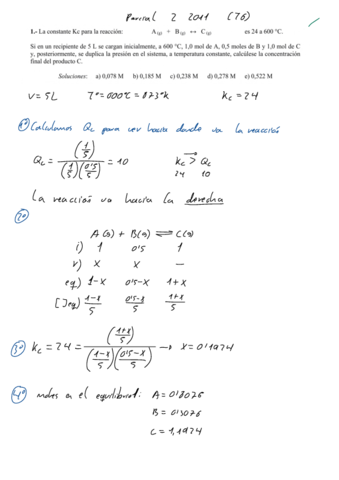 Parcial 2 2011 (T6)
1.- La constante Kc para la reacción: A(g) + B(g) ↔ C(g) es 24 a 600 °C.
Si en un recipiente de 5 L se cargan inicialmente, a 600 °C, 1,0 mol de A, 0,5 moles de B y 1,0 mol de C
y, posteriormente, se duplica la presión en el sistema, a temperatura constante, calcúlese la concentración
final del producto C.
Soluciones: a) 0,078 M b) 0,185 M c) 0,238 M d) 0,278 M e) 0,522 M
V = 5L Tº = 600ºC = 873ºK Kc = 24
1º Calculamos Qc para ver hacia donde va la reacción
Qc = (1/5) / (1/5)(0'5/5) = 10 Kc > Qc
24 10
La reacción va hacia la derecha
2º
A(g) + B(g) ⇌ C(g)
i) 1 0'5 1
r) x x –
eq) 1-x 0'5-x 1+x
[ ]eq) 1-x/5 0'5-x/5 1+x/5
3º Kc = 24 = (1+x/5) / (1-x/5)(0'5-x/5) → x = 0'1974
4º moles en el equilibrio: A = 0'8026
B = 0'3026
C = 1,1974